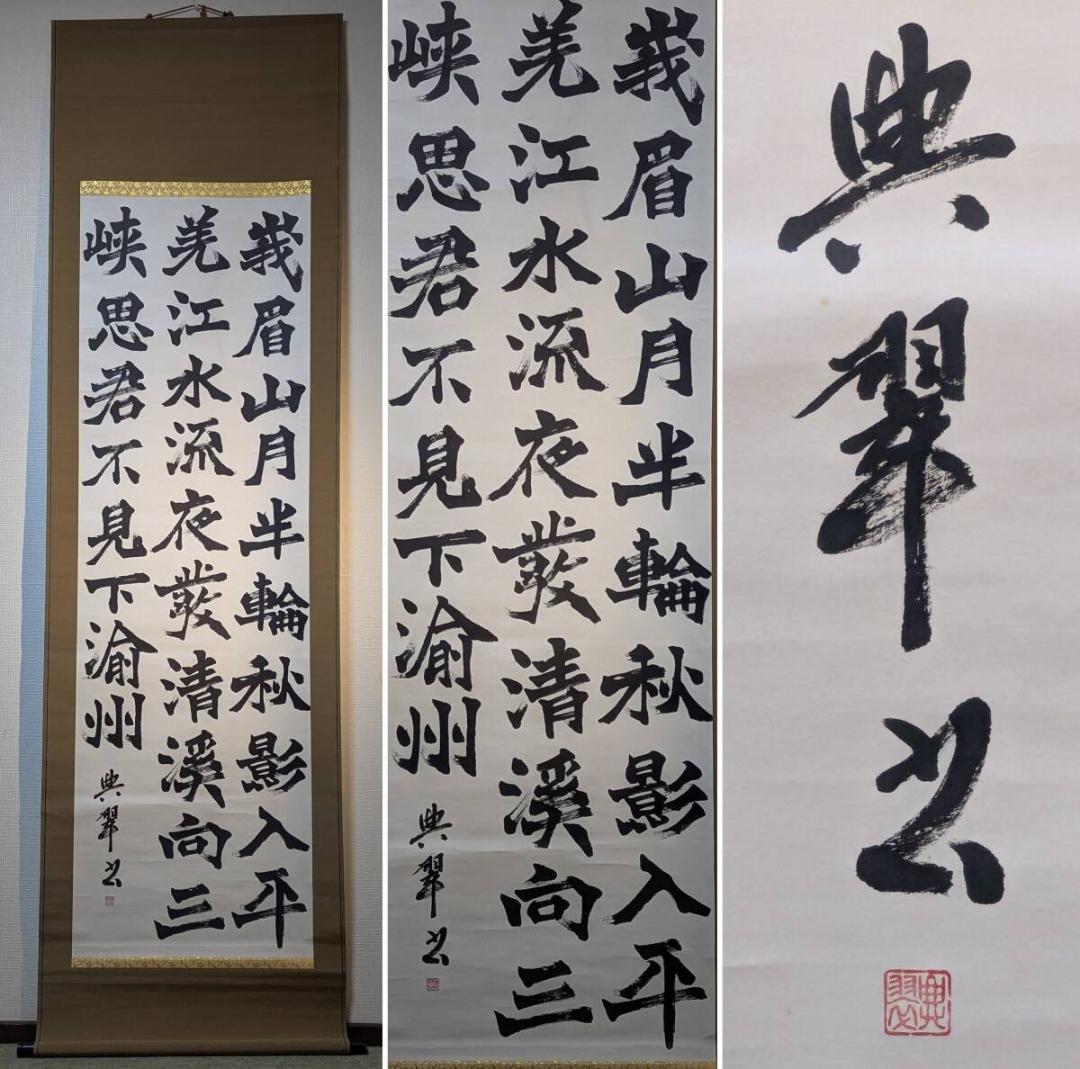 峩眉山月半輪秋影入平
羌江水流夜發清溪向三
峽思君不見下渝州
典翠书
峩眉山月半輪秋影入平
羌江水流夜發清溪向三
峽思君不見下渝州
典翠书
典翠书